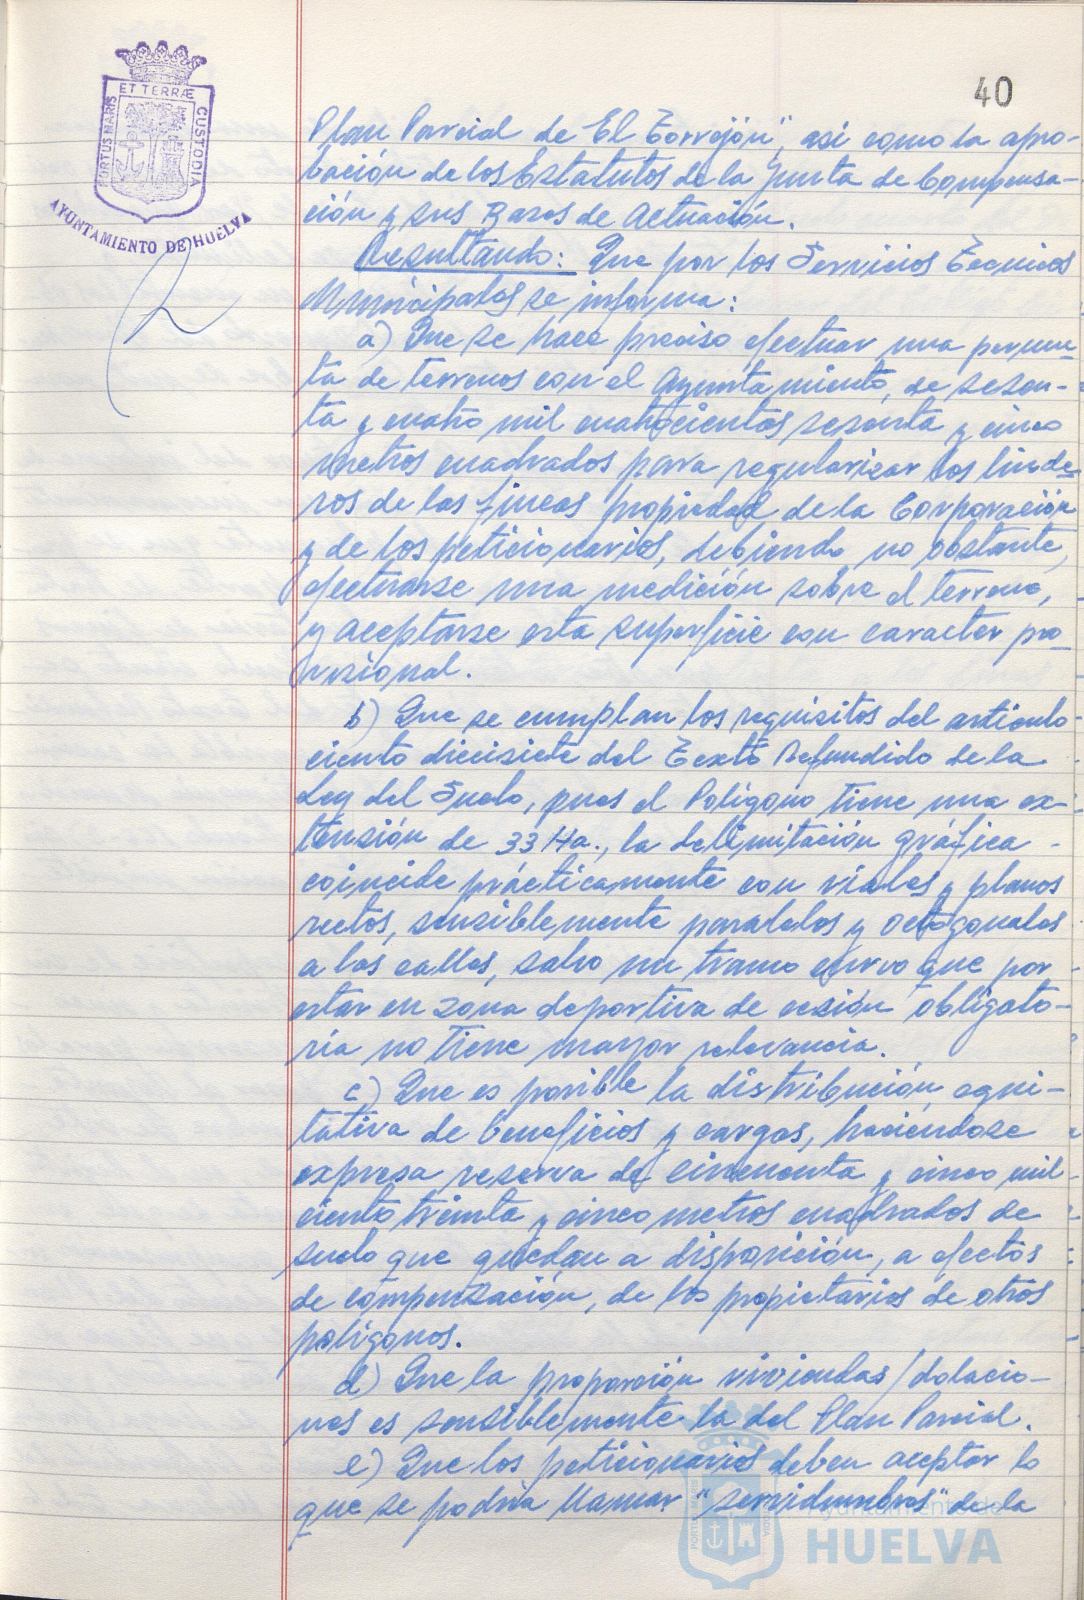 40
ET TERRÆ
PORTUS MARIS
CUSTODIA
AYUNTAMIENTO DE HUELVA
Plan Parcial de El Torrejón", así como la apro-
bación de los Estatutos de la Junta de Compensa-
ción y sus Bases de Actuación.
Resultando: Que por los Servicios Tecnicos
Municipales se informa:
a) Que se hace preciso efectuar una permu-
ta de terrenos con el Ayuntamiento, de sesen-
ta y cuatro mil cuatrocientos sesenta y cinco
metros cuadrados para regularizar los linde-
ros de las fincas propiedad de la Corporación
y de los peticionarios, debiendo no obstante,
efectuarse una medición sobre el terreno,
y aceptarse esta superficie con caracter pro-
visional.
b) Que se cumplan los requisitos del articulo
ciento diecisiete del Texto Refundido de la
Ley del Suelo, pues el Polígono tiene una ex-
tensión de 33 Ha., la delimitación gráfica -
coincide prácticamente con viales y planos
rectos, sensiblemente paralelos y octogonales
a las calles, salvo un tramo curvo que por
estar en zona deportiva de cesión obligato-
ria no tiene mayor relevancia.
c) Que es posible la distribución equi-
tativa de beneficios y cargas, haciéndose
expresa reserva de cincuenta y cinco mil
ciento treinta y cinco metros cuadrados de
suelo que quedan a disposición, a efectos
de compensación, de los propietarios de otros
polígonos.
d) Que la proporción viviendas/dotacio-
nes es sensiblemente la del Plan Parcial.
e) Que los peticionarios deben aceptar lo
que se podría llamar "servidumbres" de la
Ayuntamiento de
HUELVA